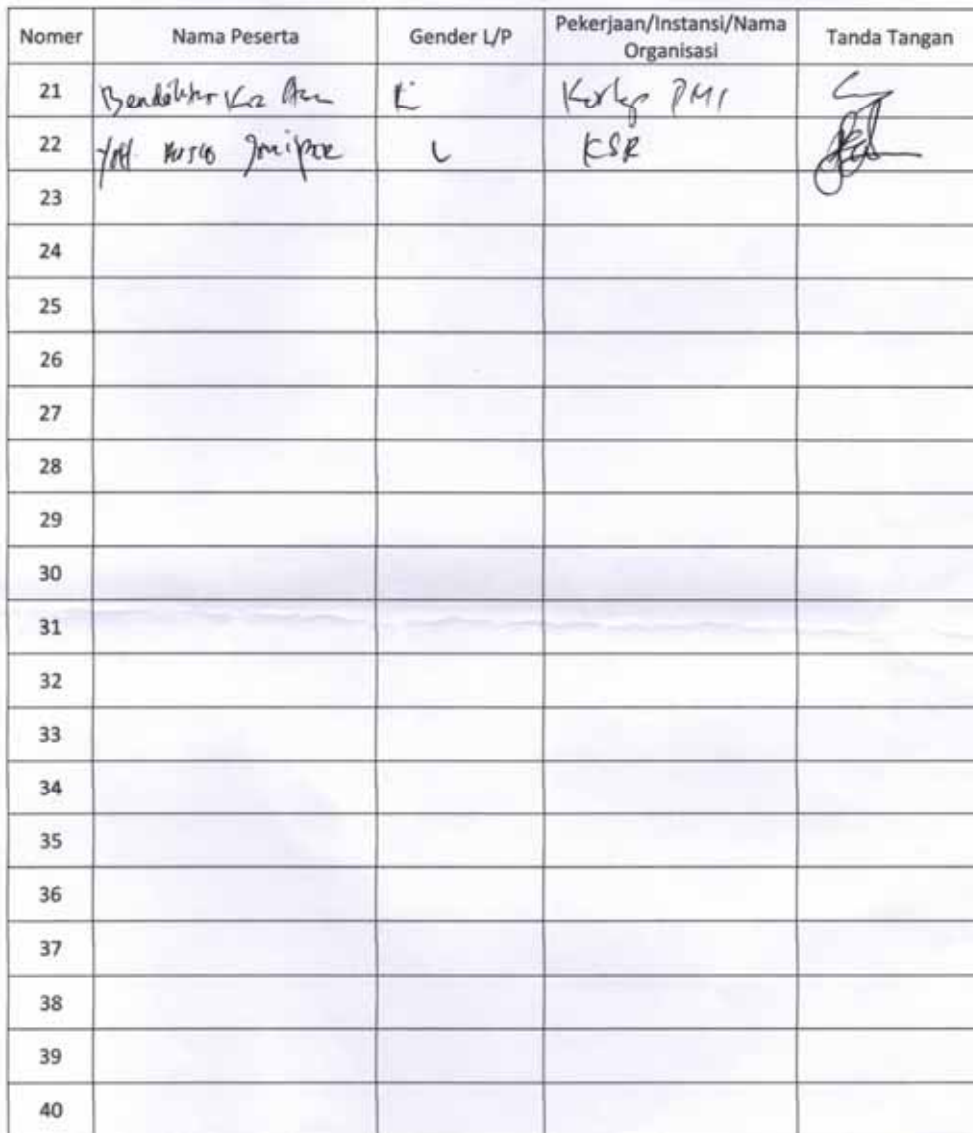 Nomer Nama Peserta Gender L/P Pekerjaan/Instansi/Nama Organisasi Tanda Tangan
21 PMI
22 L KSR
23
24
25
26
27
28
29
30
31
32
33
34
35
36
37
38
39
40